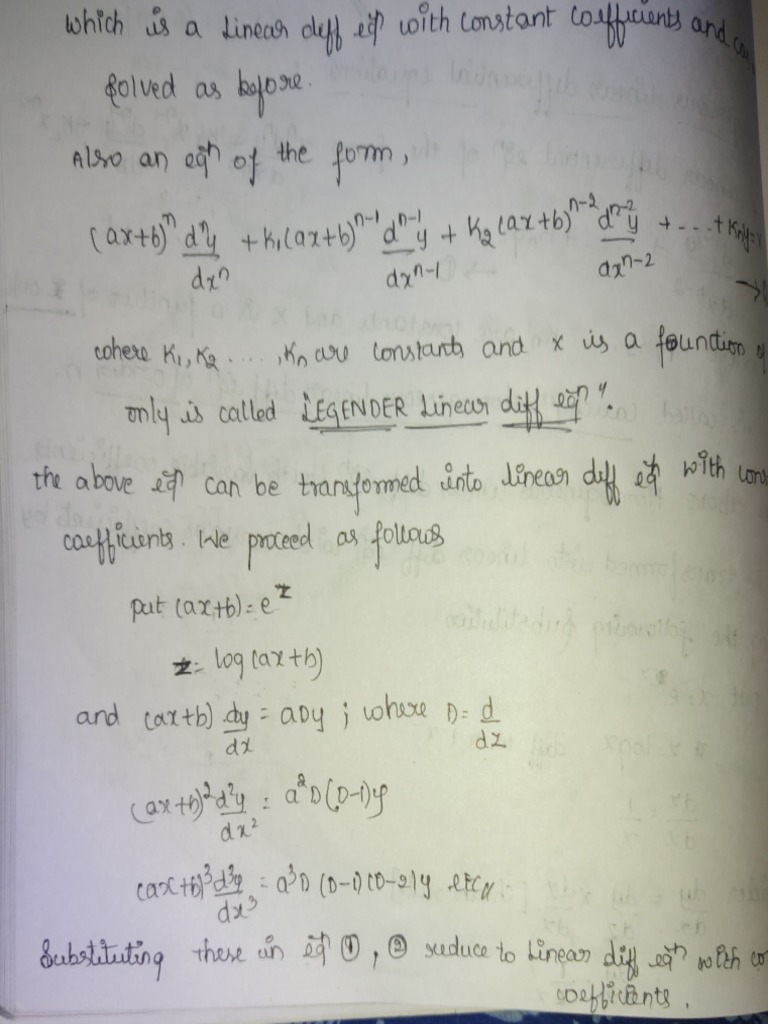 which is a Linear diff eqn with constant coefficients and
solved as before.
Also an eqn of the form,
(ax+b)^n d^n y/dx^n + K₁(ax+b)^n-1 d^n-1 y/dx^n-1 + K₂(ax+b)^n-2 d^n-2 y/dx^n-2 + - - - + Kny =
where K₁, K₂ . . . . , Kn are constants and x is a function
only is called LEGENDER Linear diff eqn".
the above eqn can be transformed into linear diff eqn with cons
coefficients. We proceed as follows
put (ax+b) = e^z
z = log(ax+b)
and (ax+b) dy/dx = aDy ; where D = d/dz
(ax+b)² d²y/dx² = a²D(D-1)y
(ax+b)³ d³y/dx³ = a³D (D-1) (D-2)y etc,,
Substituting these in eqn ①, ② reduce to Linear diff eqn with co
coefficients.